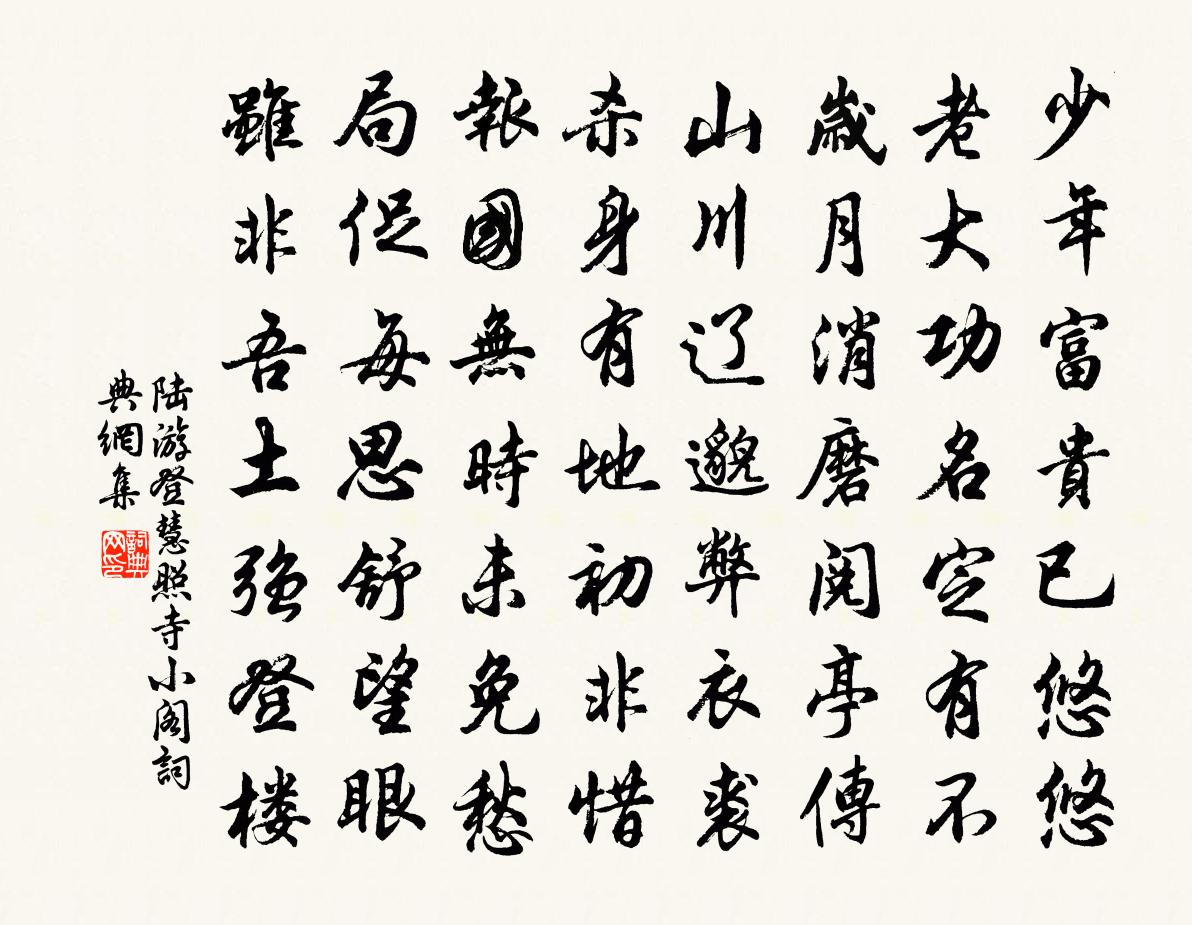 少年富貴已悠悠
老大功名定有不
歲月消磨閱亭傳
山川辽邈弊衣裘
杀身有地初非惜
報國無時未免愁
局促每思舒望眼
雖非吾土强登楼
陸游登慧照寺小閣詞
典網集
詞典网印